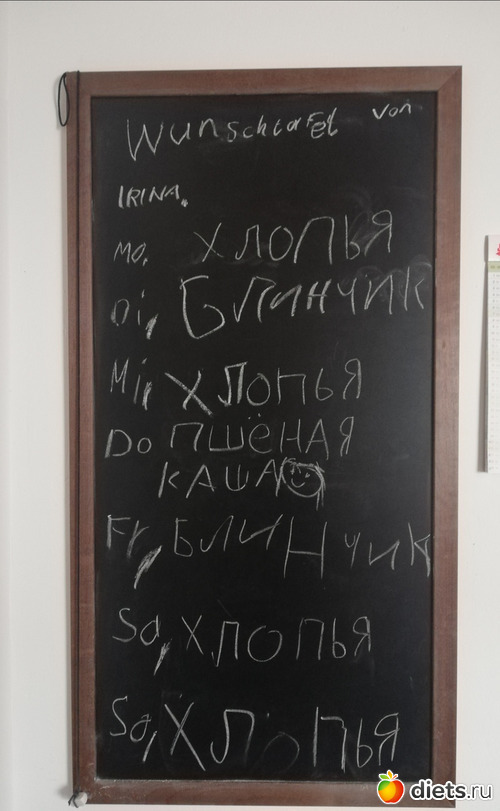 Wunschtafel von
IRINA.
Mo. ХЛОПЬЯ
Di, БЛИНЧИК
Mi, ХЛОПЬЯ
Do ПШЁНАЯ
КАША
Fr, БЛИНЧИК
Sa, ХЛОПЬЯ
So, ХЛОПЬЯ
diets.ru